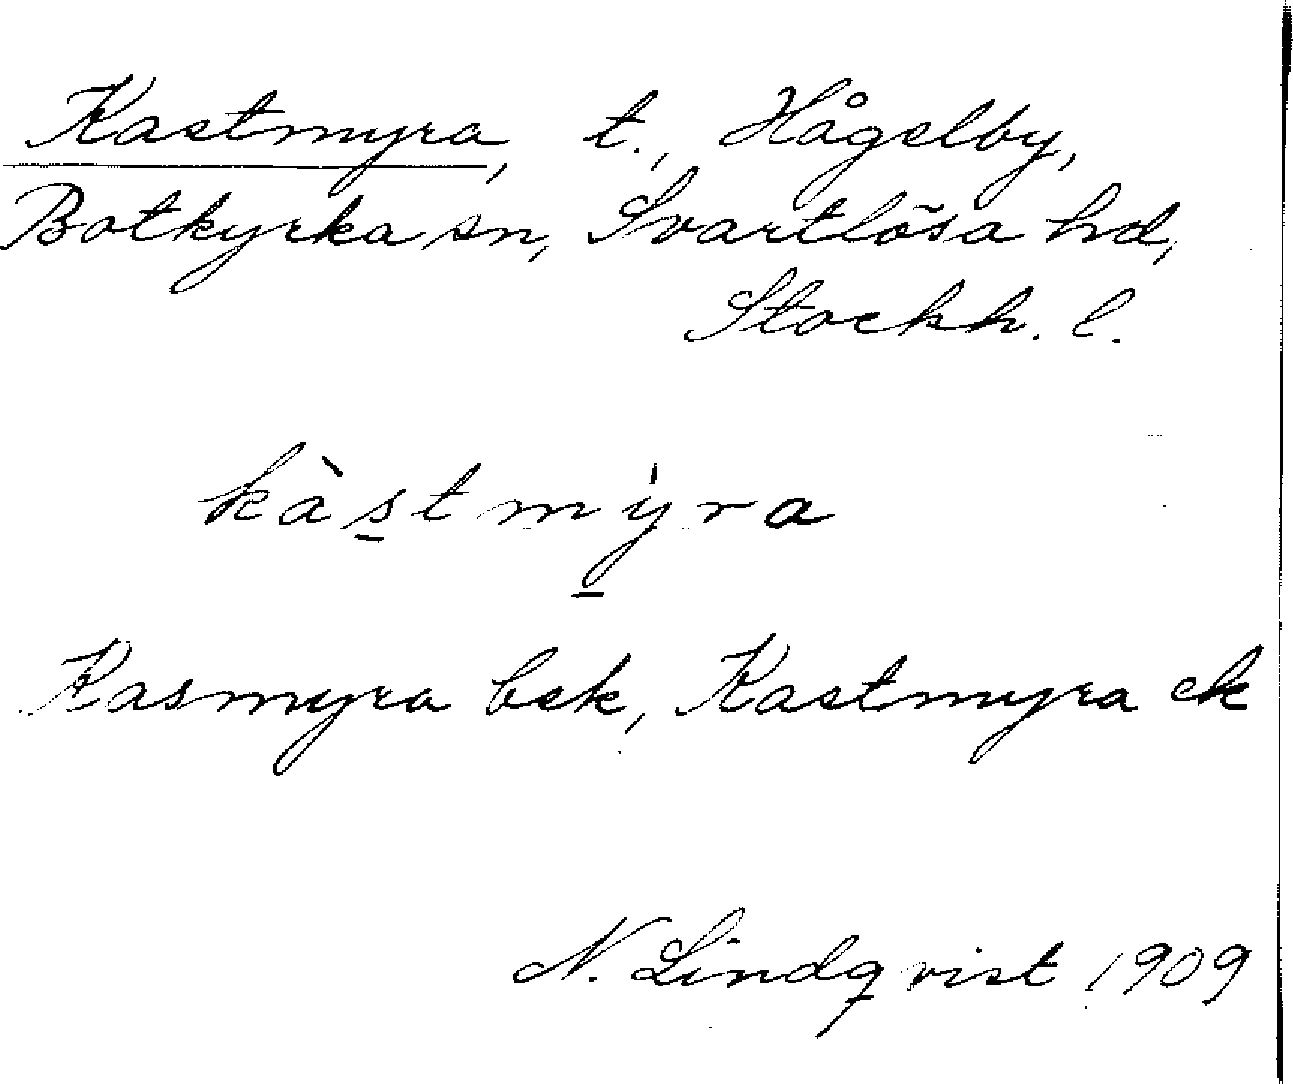 Kastmyra, t., Hågelby,
Botkyrka sn, Svartlösa hd,
Stockh. l.
kàs̲tmy̲̍ra
Kasmyra bek, Kastmyra ek
N. Lindqvist 1909